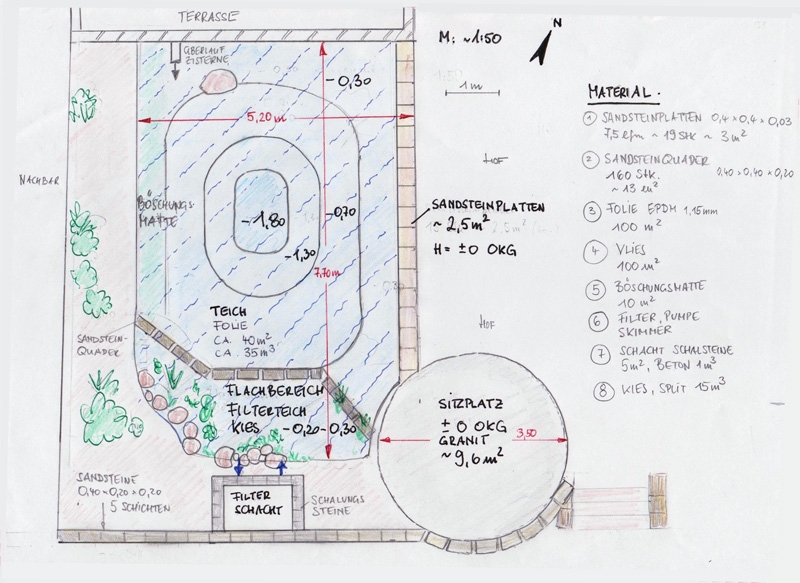 TERRASSE
ÜBERLAUF
ZISTERNE
M: ~1:50
N
1 m
-0,30
5,20 m
NACHBAR
HOF
BÖSCHUNGS
MATTE
-1,80
-0,70
-1,30
7,70 m
SANDSTEINPLATTEN
~ 2,5 m²
H= ±0 OKG
TEICH
FOLIE
CA. 40 m²
CA. 35 m³
HOF
SANDSTEIN-
QUADER
FLACHBEREICH
FILTERTEICH
KIES -0,20-0,30
SITZPLATZ
± 0 OKG
GRANIT
~ 9,6 m²
3,50
SANDSTEINE
0,40 × 0,20 × 0,20
5 SCHICHTEN
FILTER
SCHACHT
SCHALUNGS
STEINE
MATERIAL.
① SANDSTEINPLATTEN 0,4 × 0,4 × 0,03
7,5 lfm ~ 19 Stk ~ 3 m²
② SANDSTEINQUADER
160 STK. 0,40 × 0,40 × 0,20
~ 13 m²
③ FOLIE EPDM 1,15mm
100 m²
④ VLIES
100 m²
⑤ BÖSCHUNGSMATTE
10 m²
⑥ FILTER, PUMPE
SKIMMER
⑦ SCHACHT SCHALSTEINE
5 m², BETON 1 m³
⑧ KIES, SPLIT 15 m³